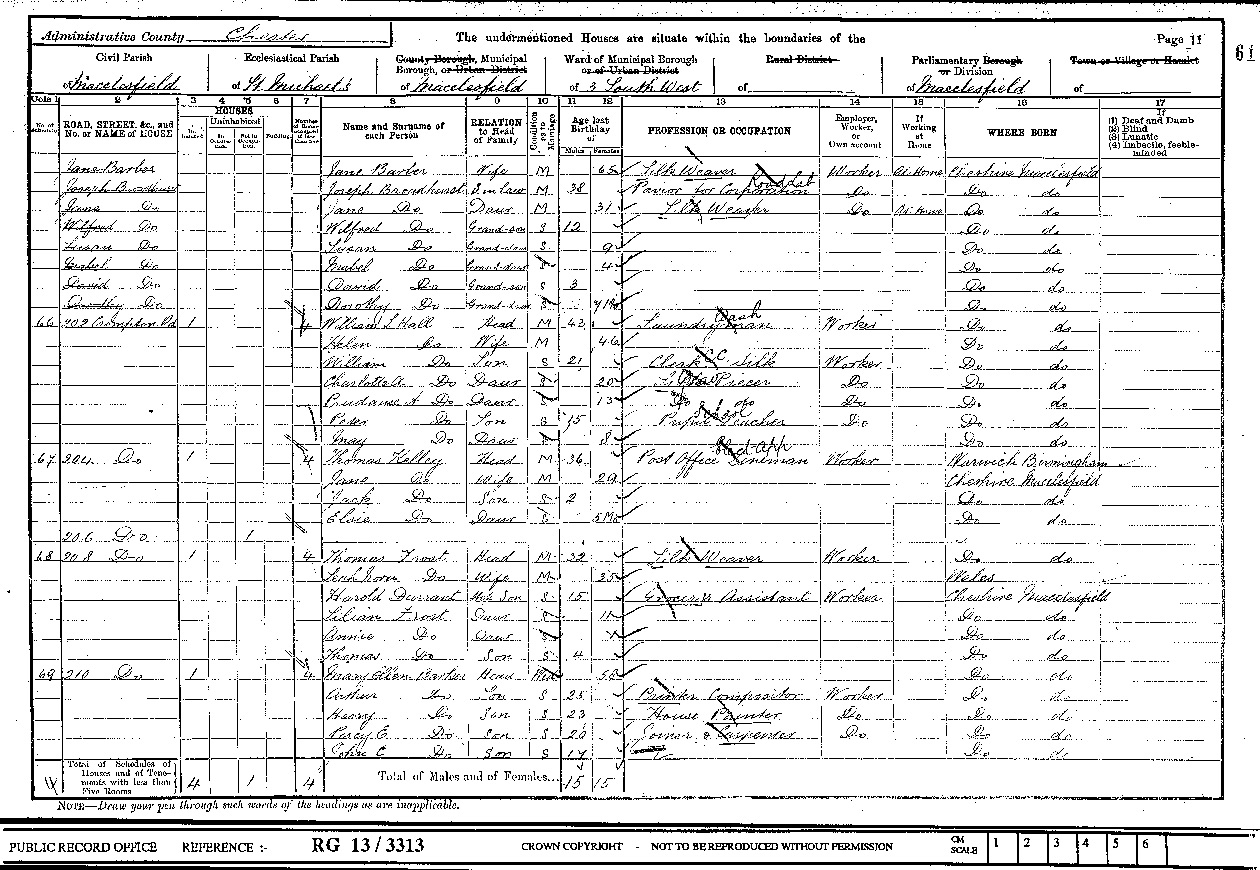 Administrative County Chester The undermentioned Houses are situate within the boundaries of the Page 11
61
Civil Parish Ecclesiastical Parish County Borough, Municipal Borough, or Urban District Ward of Municipal Borough or of Urban District Rural District Parliamentary Borough or Division Town or Village or Hamlet
of Macclesfield of St. Michael's of Macclesfield of 3 South West of of Macclesfield of
Cols 1 2 3 4 5 6 7 8 9 10 11 12 13 14 15 16 17
ROAD, STREET, &c., and No. or NAME of HOUSE HOUSES Uninhabited Name and Surname of each Person RELATION to Head of Family Condition as to Marriage Age last Birthday of Males Females PROFESSION OR OCCUPATION Employer, Worker, or Own account If Working at Home WHERE BORN If (1) Deaf and Dumb (2) Blind (3) Lunatic (4) Imbecile, feeble-minded
Jane Barber Jane Barber Wife M 65 Silk Weaver Worker At Home Cheshire Macclesfield
Joseph Broadhurst Joseph Broadhurst Law M 38 Pavior for Corporation Do Do do
Jane Do Jane Do Daur M 31 Silk Weaver Do At Home Do do
Wilfred Do Wilfred Do Grand-son S 12 Do do
Susan Do Susan Do Grand-daur S 9 Do do
Do Mabel Do Grand-daur S 4 Do do
David Do David Do Grand-son S 3 Do do
Dorothy Do Dorothy Do Grand-daur S Do do
66 202 Crompton Rd 1 4 William S Hall Head M 42 Laundryman Wash Worker Do do
Helen Do Wife M 46 Do do
William Do Son S 21 Clerk Silk Worker Do do
Charlotte A Do Daur S 20 Piecer Do Do do
Prudance A Do Daur S 13 Do do Do Do do
Peter Do Son S 15 Pupil Teacher Do Do do
May Do Daur S 8 Do do
67 204 Do 1 4 Thomas Kelley Head M 36 Post Office Lineman Worker Warwick Birmingham
Jane Do Wife M 29 Cheshire Macclesfield
Jack Do Son S 2 Do do
Elsie Do Daur S 5 Mo Do do
206 Do 1
68 208 Do 1 4 Thomas Frost Head M 32 Silk Weaver Worker Do do
Do Wife M 35 Wales
Harold Durrant Son S 15 Grocer's Assistant Worker Cheshire Macclesfield
Lilian Frost Daur S 11 Do do
Annie Do Daur S Do do
Thomas Do Son S 4 Do do
69 210 Do 1 4 Mary Ellen Barber Head Wid 50 Do do
Arthur Do Son S 25 Printer Compositor Worker Do do
Harry Do Son S 23 House Painter Do Do do
Percy E Do Son S 20 Joiner & Carpenter Do Do do
John E Do Son S 17 Do do
Total of Schedules of Houses and of Tenements with less than Five Rooms 4 1 4 Total of Males and of Females... 15 15
NOTE—Draw your pen through such words of the headings as are inapplicable.
PUBLIC RECORD OFFICE REFERENCE :- RG 13 / 3313 CROWN COPYRIGHT - NOT TO BE REPRODUCED WITHOUT PERMISSION CM SCALE 1 2 3 4 5 6